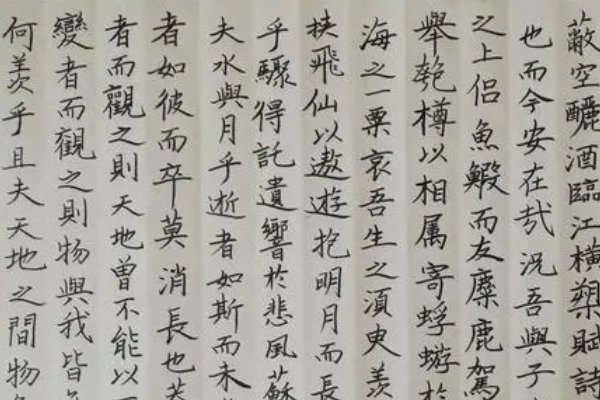 蔽空釃酒臨江橫槊賦詩
也而今安在哉況吾與子
之上侶魚鰕而友麋鹿駕
舉匏樽以相属寄蜉蝣於
海之一粟哀吾生之須臾羨
挟飛仙以遨遊抱明月而長
乎驟得託遺響於悲風蘇
夫水與月乎逝者如斯而未
者如彼而卒莫消長也蓋
者而觀之則天地曾不能以
變者而觀之則物與我皆
何羨乎且夫天地之間物